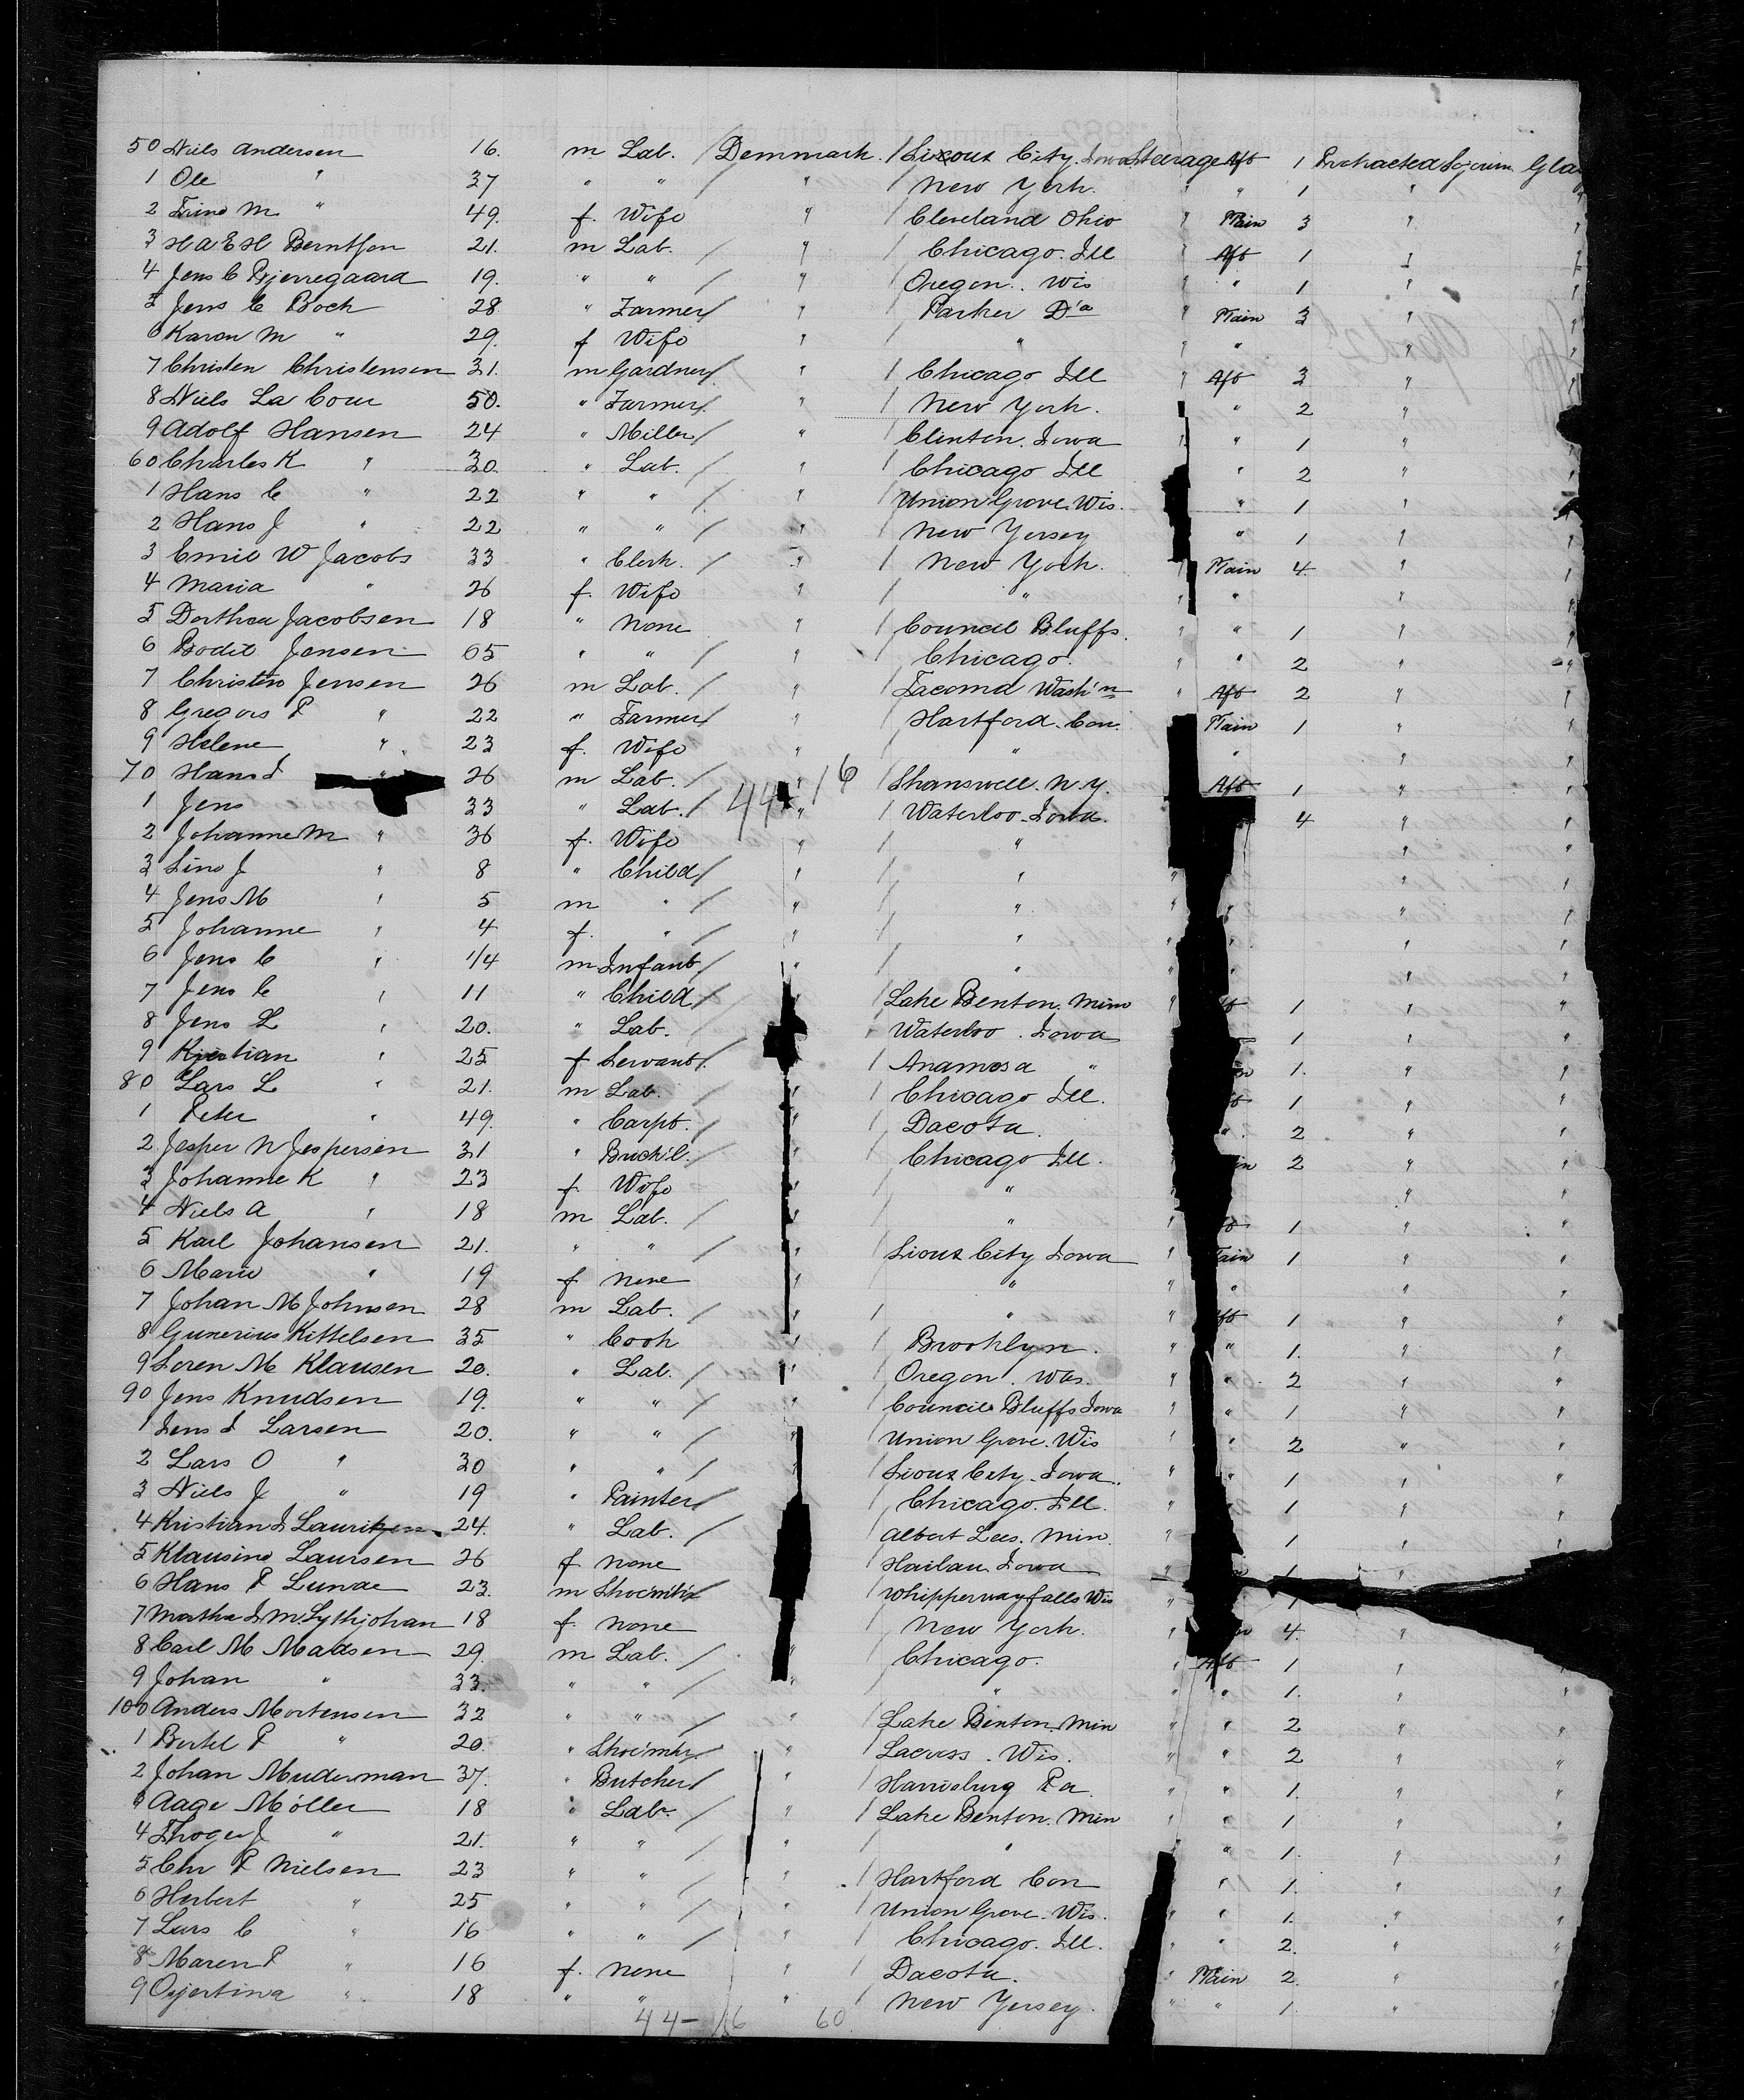 50 Niels Andersen 16. m Lab. / Denmark. / Sixous City. Iowa Steerage Aft 1 Protracted Sojourn Gla
1 Ole " 37 " " / " / New York. " " 1 " "
2 Trine M. " 49. f. Wife " / Cleveland Ohio " Main 3 " "
3 H A E H Berntsen 21. m Lab. / " / Chicago. Ill " Aft 1 " "
4 Jens C Bjerregaard 19. " " / " / Oregon. Wis " " 1 " "
5 Jens C Boch 28 " Farmer / " / Parker D'a " Main 3 " "
6 Karen M " 29. f Wife " / " " " " "
7 Christen Christensen 31. m Gardner / " / Chicago Ill " Aft 3 " "
8 Niels La Cour 50. " Farmer / " / New York. " 2 "
9 Adolf Hansen 24 " Miller / " / Clinton. Iowa " " 1 "
60 Charles K " 30. " Lab. / " / Chicago Ill " 2 "
1 Hans C " 22 " " / " / Union Grove. Wis. " 1 "
2 Hans J " 22 " " / " / New Yersey " 1 "
3 Emil W Jacobs 33 " Clerk. / " / New York. " Main 4. " "
4 Maria " 26 f. Wife " / " " " " "
5 Dorthea Jacobsen 18 " None " / Council Bluffs. " " 1 " "
6 Bodil Jensen 65 " " / " / Chicago. " " 2 " "
7 Christen Jensen 26 m Lab. / " / Tacoma Wash'n " Aft 2 " "
8 Gregors P " 22 " Farmer / " / Hartford. Con. Main 1 " "
9 Helene " 23 f. Wife " / " " " "
70 Hans 26 m Lab. / 44 " 16 / Shanswell. N.Y. Aft 1 " "
1 Jens 33 " Lab. / " / Waterloo. Iowa. 4 " "
2 Johanne M " 36 f. Wife " / " " "
3 Line J " 8 " Child / " / " " " "
4 Jens M " 5 m " / " / " " " " "
5 Johanne " 4 f. " / " / " " " " "
6 Jens C " 1/4 m Infant / " / " " " " "
7 Jens C " 11 " Child / " / Lake Benton. Minn " 1 " "
8 Jens L " 20. " Lab. Waterloo. Iowa 1 " "
9 Kjestian " 25 f Servant / / Anamosa " 1. " "
80 Lars L " 21. m Lab. / " / Chicago Ill. 1 " "
1 Peter " 49. " Carpt. / " / Dacota. " 2 " "
2 Jesper N Jespersen 31 " Brick'l. / " / Chicago Ill. 2 " "
3 Johanne K " 23 f Wife " / " " "
4 Niels A " 18 m Lab. / " / " " 1 " "
5 Karl Johansen 21. " " / " / Sioux City Iowa " Main 1 " "
6 Marie " 19 f none " / " " " " "
7 Johan M Johnsen 28 m Lab. / " / " " Aft 1 " "
8 Gunerius Kittelsen 35 " Cook " / Brooklyn. " " 1. " "
9 Soren M Klausen 20. " Lab. / " / Oregon. Wis. " " 2 " "
90 Jens Knudsen 19. " " / " / Council Bluffs Iowa " " 1 " "
1 Jens Larsen 20. " " / " / Union Grove. Wis " " 2 " "
2 Lars O " 30 " " / " / Sioux City. Iowa. " " 1 " "
3 Niels J " 19 " Painter / / Chicago. Ill. " 1 " "
4 Kristian Lauritzen 24. " Lab. / / Albert Lees. Min. " 1 " "
5 Klausine Laursen 26 f none / Iowa " 1 "
6 Hans P Lunde 23. m / Whipperwayfalls Wis "
7 Martha 18 f. none / New York. " 4. "
8 Carl M Madsen 29. m Lab. / " / Chicago. " Aft 1 "
9 Johan " 33. " " / " / " " " 1. " "
100 Anders Mortensen 32 " " / " / Lake Benton. Min " " 2 " "
1 Bertel P " 20. " Shoe'mkr. / " / Lacross. Wis. " " 2 " "
2 Johan Muderman 37. " Butcher / " / Harrisburg Pa " " 1. " "
3 Aage Möller 18 " Lab. / " / Lake Benton. Min " " 1 " "
4 Thoger J " 21. " " / " / " " " 1. " "
5 Chr P Nielsen 23 " " / " / Hartford Con " 1. " "
6 Herbert " 25 " " / " / Union Grove. Wis. " " 1. " "
7 Lars C " 16 " " / " / Chicago. Ill. " " 2. " "
8 Maren P " 16 f. none " / Dacota. " Main 2. " "
9 Ojertina " 18 " " " / New Yersey. " " 1. " "
44- 16 60